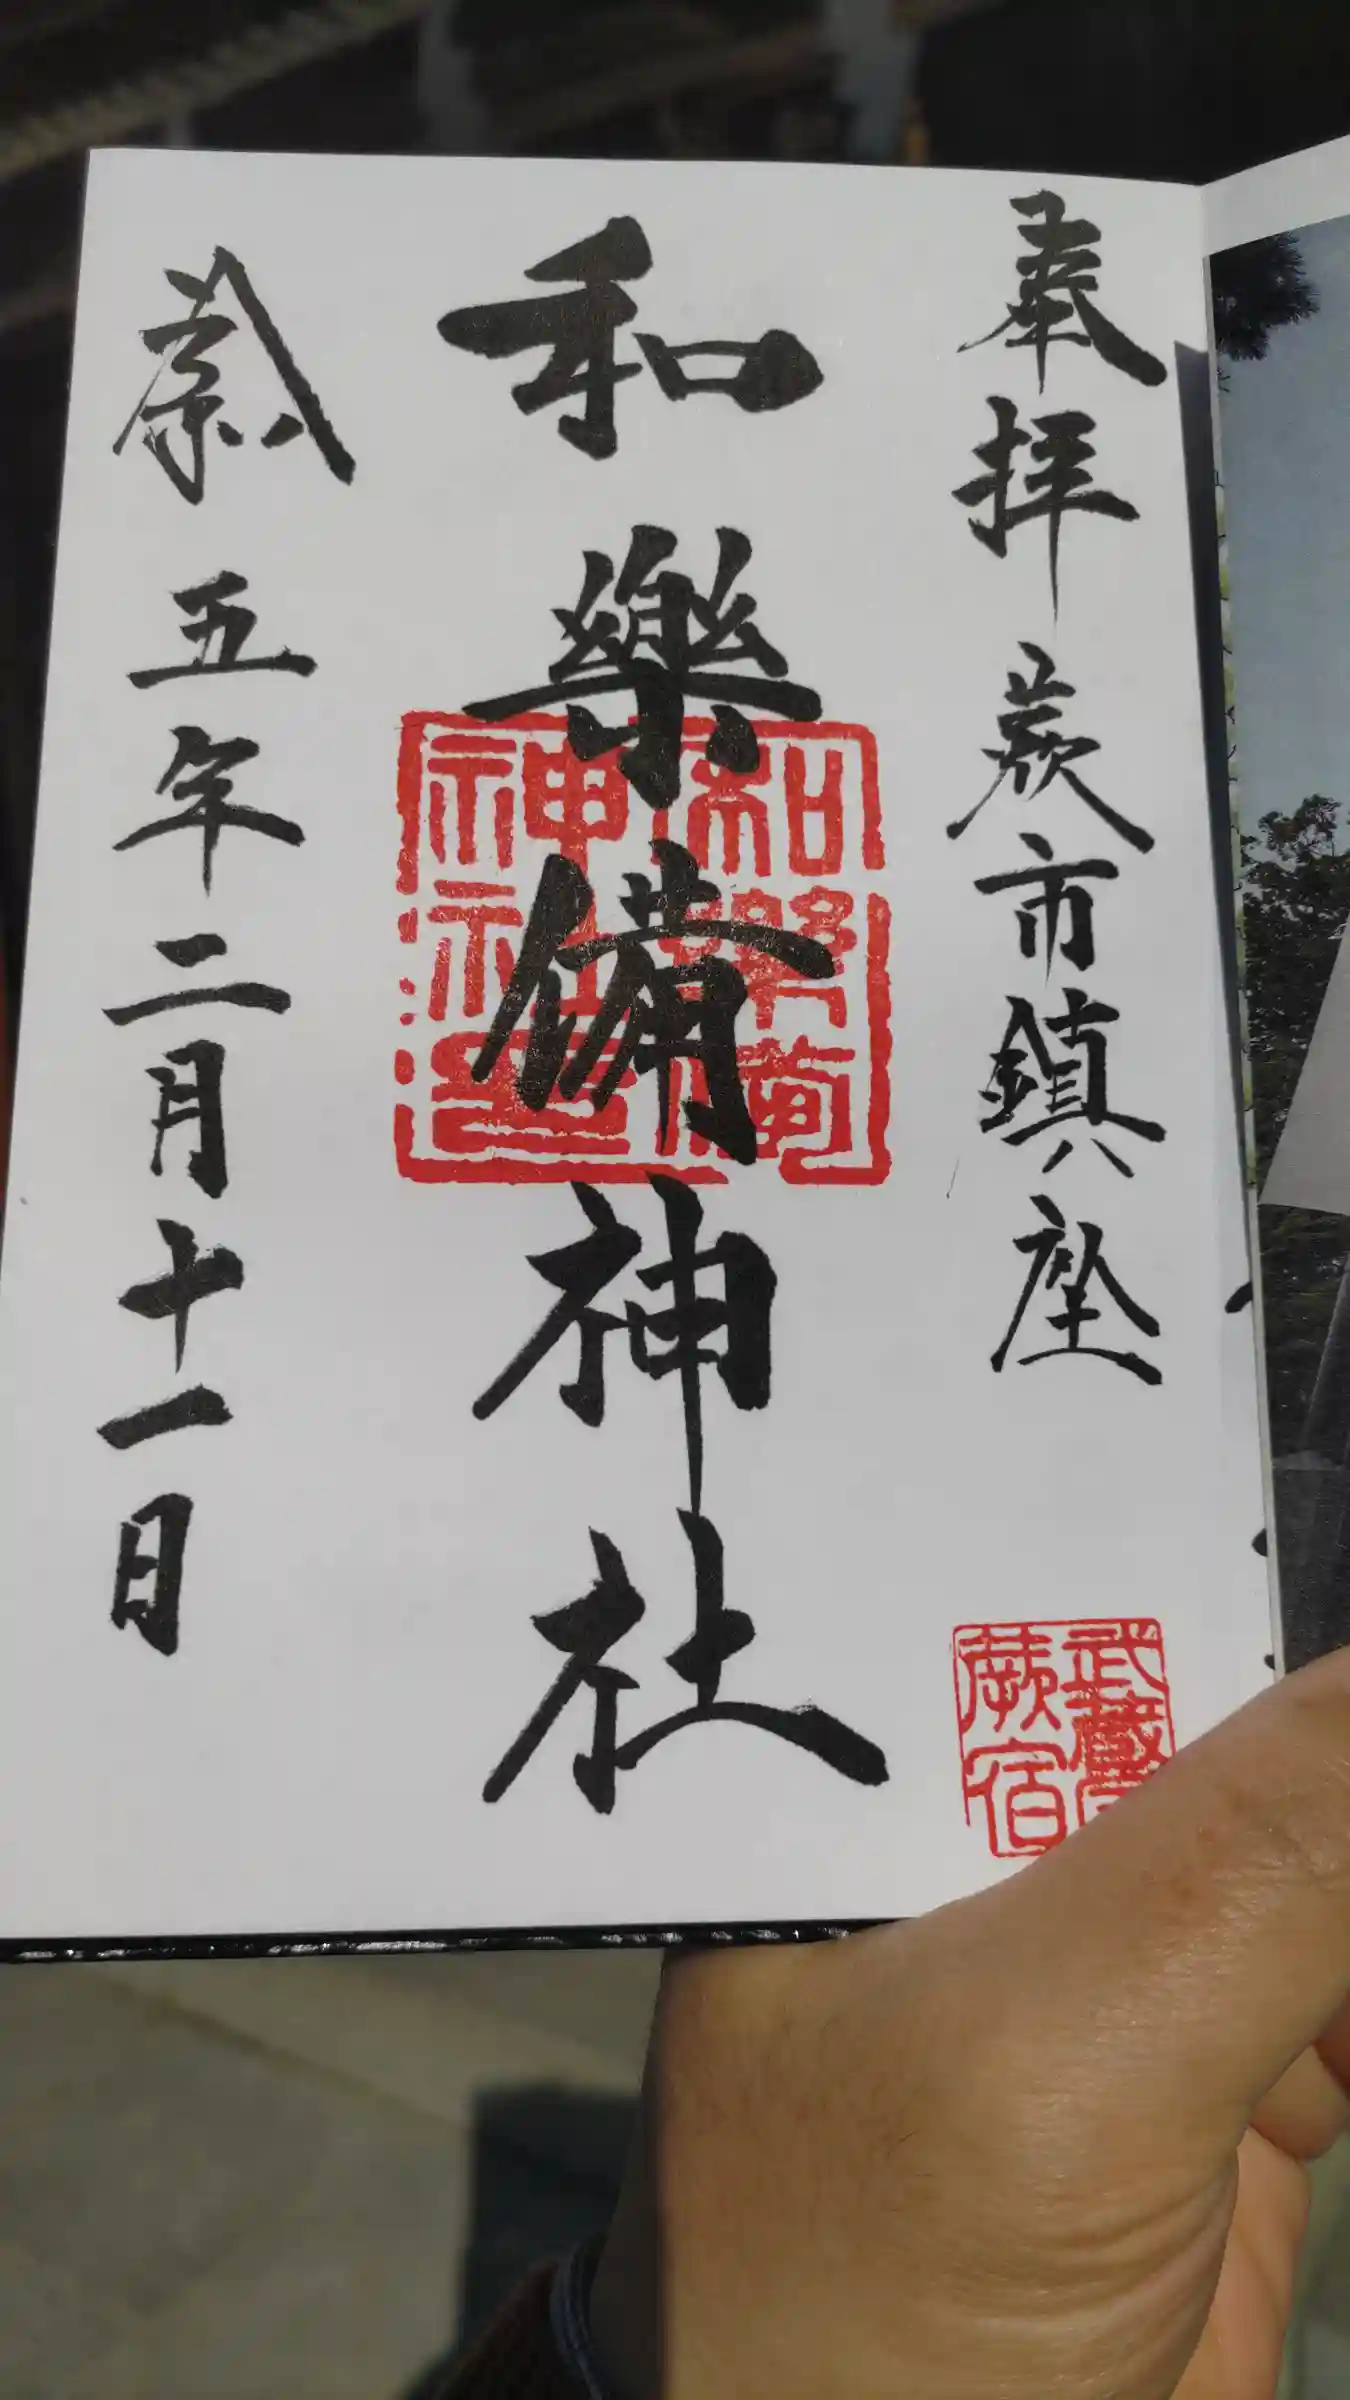 奉拝 蕨市鎮座
武蔵
蕨宿
和樂備神社
和樂備
神社
五年二月十一日